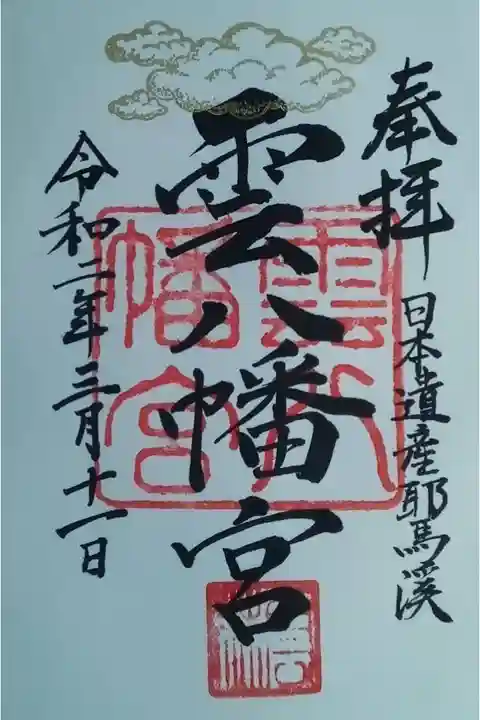 奉拝
日本遺産耶馬渓
雲八幡宮
雲八幡宮
令和二年三月十一日